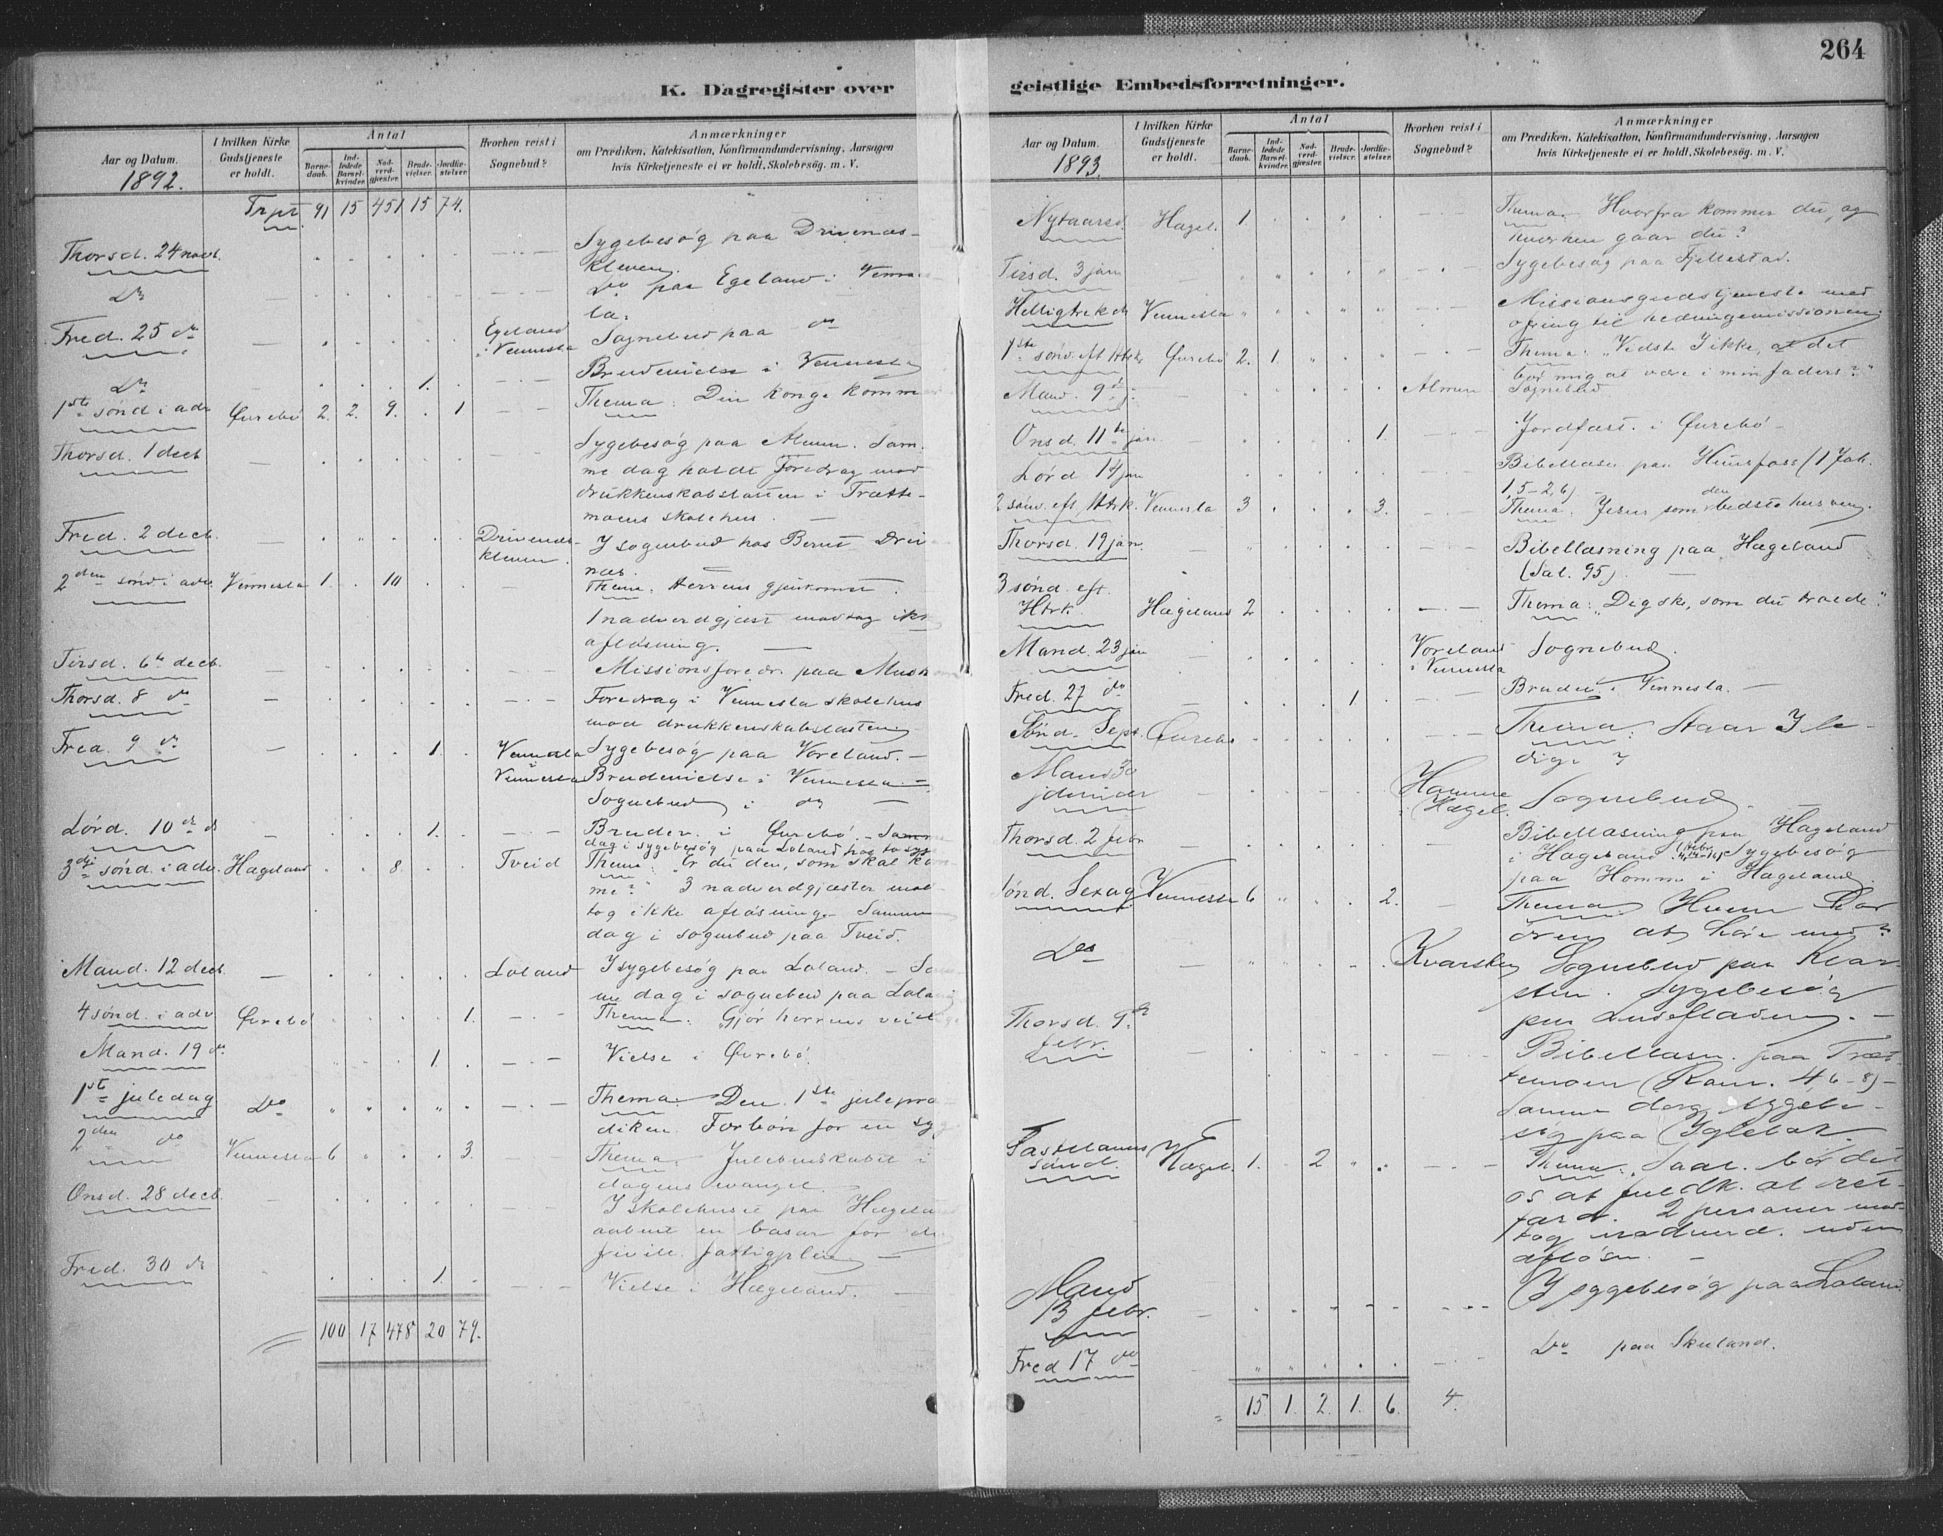 264
K. Dagregister over geistlige Embedsforretninger.
Aar og Datum. 1892.
I hvilken Kirke Gudstjeneste er holdt.
Antal
Barne-daab. Ind-ledede Barsel-kvinder. Nad-verd-gjæster. Brude-vielser. Jordfæ-stelser.
Hvorhen reist i Sognebud?
Anmærkninger
om Prædiken, Katekisation, Konfirmandundervisning, Aarsagen
hvis Kirketjeneste ei er holdt, Skolebesøg. m. V.
Trpt 91 15 451 15 74.
Thorsd. 24 novb. Sygebesøg paa Drivenes-
kleven.
Do Do paa Egeland i Venne
la.
Fred. 25 do Egeland i Vennesla Sognebud paa do
Do 1. Brudevielse i Vennesla
1ste sønd i adv Øvrebø 2. 2. 9. 1 Thema: Din konge kommer
Thorsd. 1 decb Sygebesøg paa Sam-
me dag holdt Foredrag mod
drukkenskabslasten i Trætte-
moens skolehus.
Fred. 2 decb. Drivenes-kleven. I sognebud hos Bernt Drive
nes.
2den sønd i adv. Vennesla 1. 10 Thema. Herrens gjenkomst.
1 nadverdgjæst modtog ikke
afløsning.
Tirsd. 6te decb. Missionsforedr. paa
Thorsd. 8 do Foredrag i Vennesla skolehus
mod drukkenskabslasten
Fred. 9 do 1. Vennesla Sygebesøg paa Voreland.
Vennesla Brudevielse i Vennesla.
Sognebud i do
Lørd. 10 do 1. Brudev. i Øvrebø. Samme
dag i sygebesøg paa Loland hos to syge
3die sønd. i adv. Hægeland 8. Tveid Thema: "Er du den, som skal kom-
me?" 3 nadverdgjæster mod-
tog ikke afløsning. Samme
dag i sognebud paa Tveid.
Mand. 12 decb. Loland I sygebesøg paa Loland. Sam
me dag i sognebud paa Loland
4 sønd. i adv Øvrebø 1. Thema: "Gjør herrens vei
Mand. 19 do 1. Vielse i Øvrebø
1ste juledag Do Thema. Den 1ste julepræ
diken. Forbøn for en syg
2den do Vennesla 6 3. Thema. Julebudskabet i
dagens evangel.
Onsd. 28 decb. I skolehuset paa Hægeland
aabnet en basar for den
frivill. fattigpleie
Fred. 30 do 1. Vielse i Hægeland.
100 17 478 20 79.
Aar og Datum. 1893.
I hvilken Kirke Gudstjeneste er holdt.
Antal
Barne-daab. Ind-ledede Barsel-kvinder. Nad-verd-gjæster. Brude-vielser. Jordfæ-stelser.
Hvorhen reist i Sognebud?
Anmærkninger
om Prædiken, Katekisation, Konfirmandundervisning, Aarsagen
hvis Kirketjeneste ei er holdt, Skolebesøg. m. V.
Nytaarsd. Hægel. 1. Thema. Hvorfra kommer du, og
hvorhen gaar du?
Tirsd. 3 jan Sygebesøg paa Fjellestad.
Helligtrek.d. Vennesla Missionsgudstjeneste med
ofring til hedningemissionen
1ste sønd. eft Htrk Øvrebø 2. 1 Thema: "Vidste I ikke, at det
bør mig at være i min faders?"
Mand. 9de j. Sognebud
Onsd. 11te jan 1. Jordfæst. i Øvrebø
Lørd 14 jan Bibellæsn paa Hunsfoss (1 Joh.
1,5-2,6)
2 sønd. eft Htrk. Vennesla 3 3. Thema. Jesus som den bedste husven.
Thorsd. 19 jan. Bibellæsning paa Hægeland
(Sal. 95).
3 sønd. eft. Htrk. Hægeland 2 Thema: "Dig ske, som du troede".
Mand. 23 jan Voreland i Vennesla Sognebud.
Fred. 27 do 1 Brudev. i Vennesla.
Sønd. Sept. Øvrebø Thema: Staar I le-
dige?
Mand 30 Homme i Hægel. Sognebud.
Thorsd. 2 febr Bibellæsning paa Hægeland
i Hægeland. Sygebesøg
paa Homme i Hægeland.
Sønd. Sexag Vennesla 6 2. Thema. Hvem har
øren at høre med?
Do Kvarsten Sognebud paa Kvar-
sten. Sygebesøg
paa
Thorsd. 9de febr. Bibellæsn. paa Træt-
temoen (Rom. 4,6-8)
Samme dag sygebe-
søg paa
Fastelavns sønd. Hægel. 1. 2 Thema: "Saal. bør det
os at fuldk. al ret-
færd. 2 personer mod-
tog nadverd. uden
afløsn.
Mand 13 febr. I sygebesøg paa Loland.
Fred 17 do Do paa Skuland.
15 1. 2. 1. 6. 4.